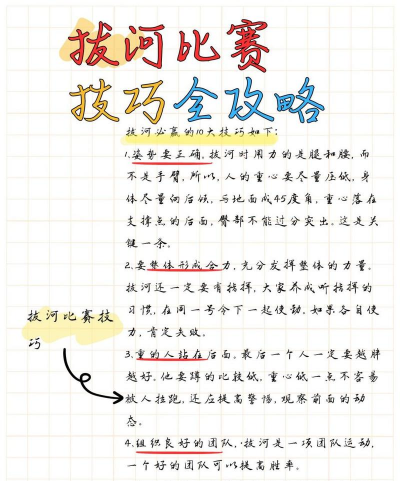 拔河比赛
技巧全攻略
拔河必赢的10大技巧如下:
1.姿势要正确。拔河时用力的是腿和腰,而
不是手臂。所以,人的重心要尽量压低,身
体尽量向后倾,与地面成45度角,重心落在
支撑点的后面,臀部不能过分突出。这是关
键一条。
2.要整体形成合力,充分发挥整体的力量。
拔河还一定要有指挥,大家养成听指挥的
习惯,在同一号令下一起使劲。如果各自使
力,肯定失败。
拔河比赛技
巧
3.重的人站在后面。最后一个人一定要越胖
越好。他要蹲的比较低,重心低一点不容易
被人拉跑,还应提高警惕,观察前面的动
态。
4.组织良好的团队,拔河是一项团队运动,
一个好的团队可以提高胜率。